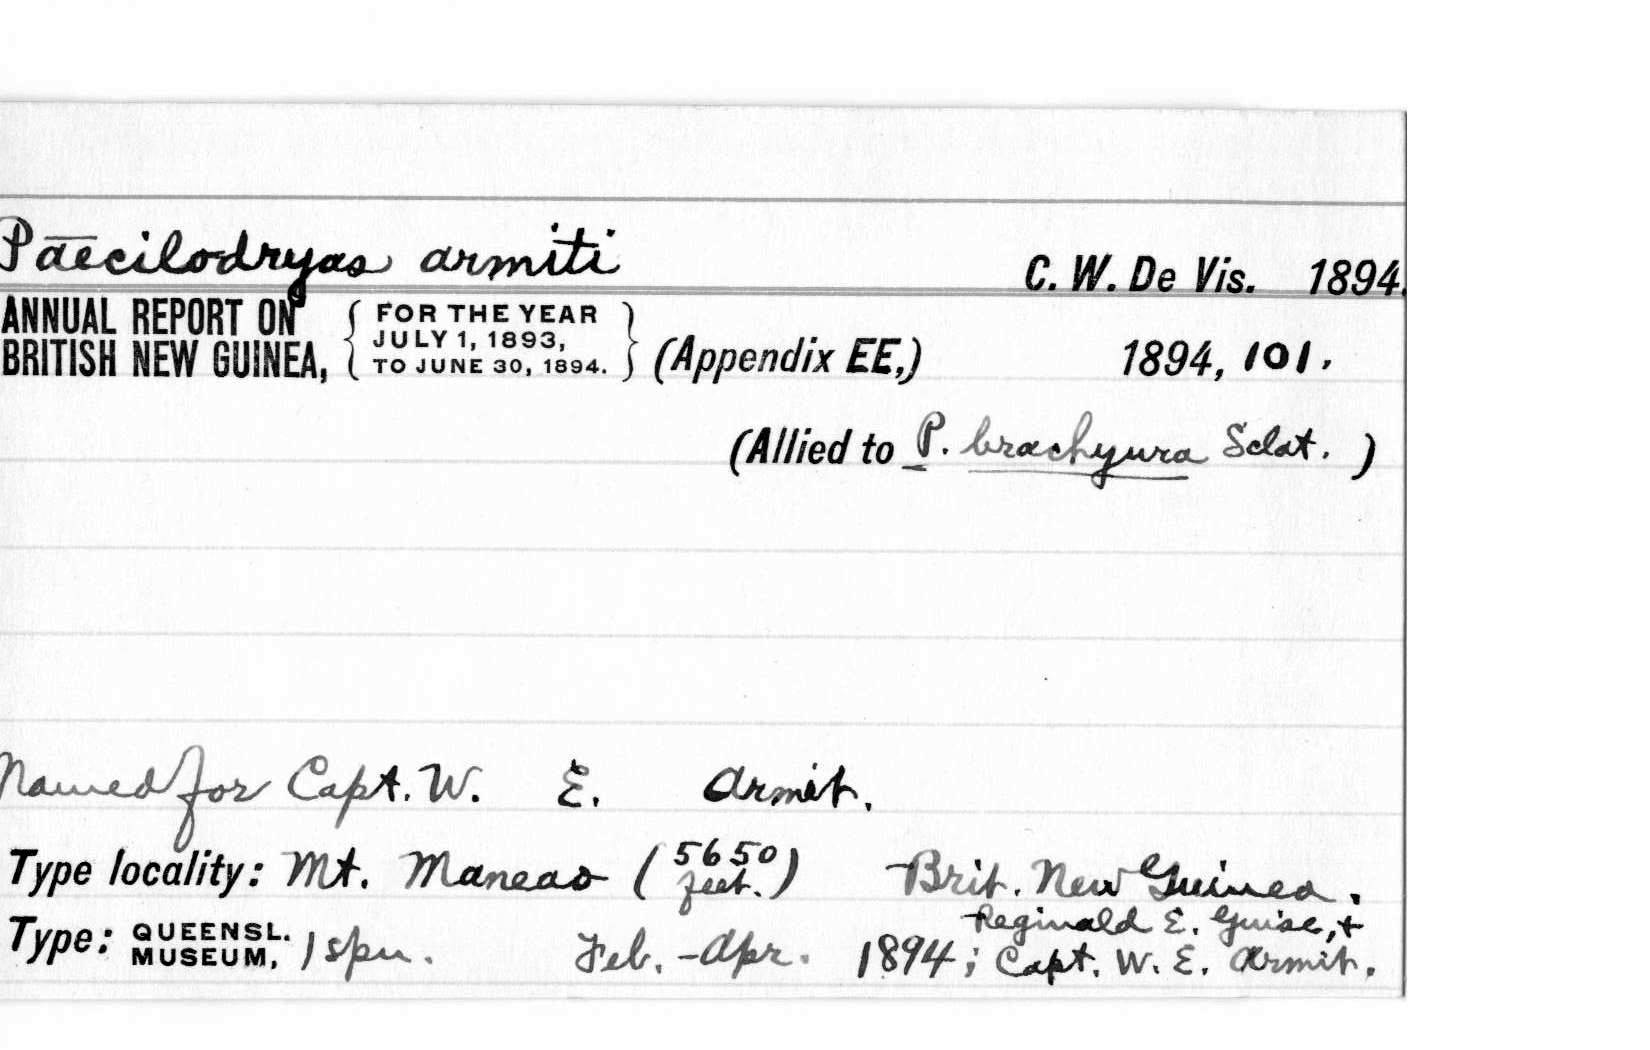 Paecilodryas armiti C. W. De Vis. 1894.
ANNUAL REPORT ON BRITISH NEW GUINEA, { FOR THE YEAR JULY 1, 1893, TO JUNE 30, 1894. } (Appendix EE,) 1894, 101.
(Allied to P. brachyura Sclat. )
Named for Capt. W. E. Armit.
Type locality: Mt. Maneao (5650 feet.) Brit. New Guinea.
Type: QUEENSL. MUSEUM, 1 spn. Feb. - Apr. 1894; Reginald E. Guise, + Capt. W. E. Armit.